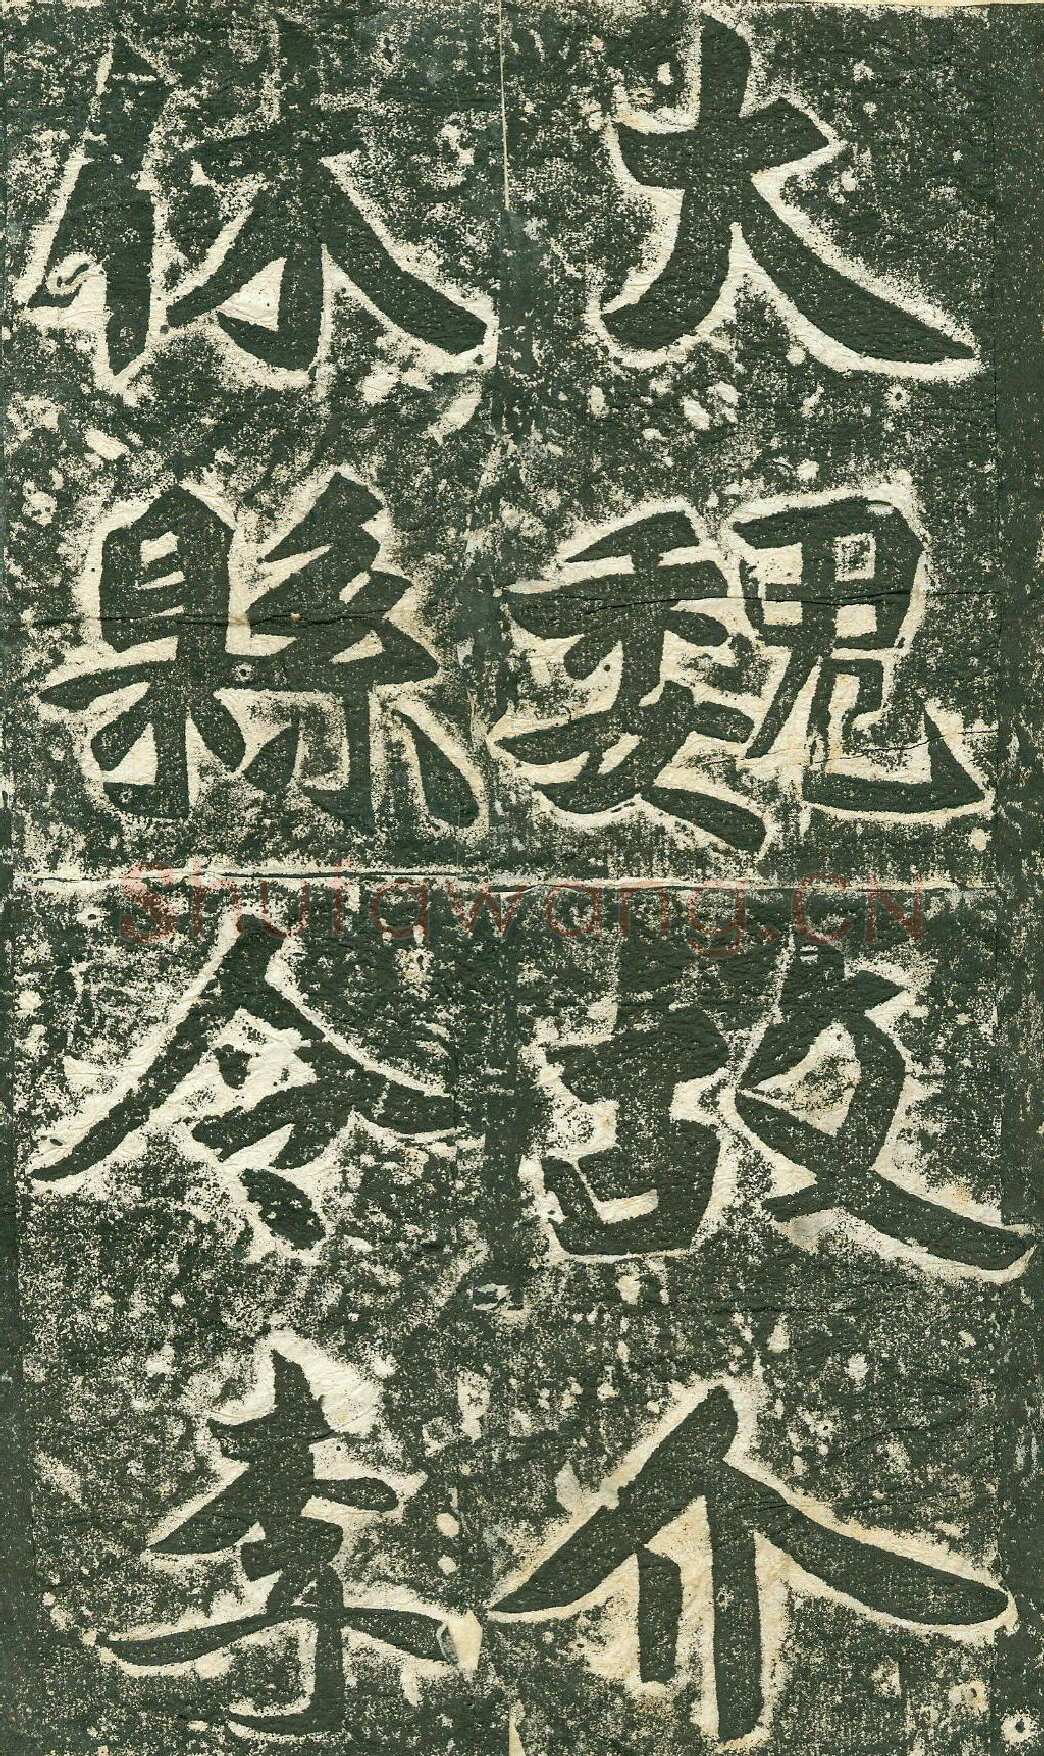 大魏故介
休縣令李
Shufawang.CN